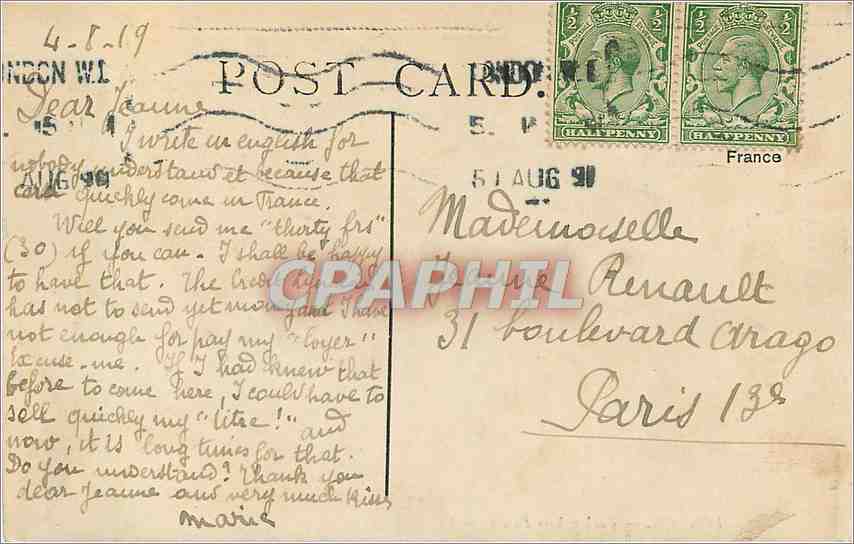 4-8-19
LONDON W.1
POST CARD.
HALFPENNY
HALFPENNY
France
5 AUG
Dear Jeanne
I write in english for
nobody understand it because that
card quickly come in France.
Will you send me "thirty frs"
(30) if you can. I shall be happy
to have that. The Credit
has not to send yet money and I have
not enough for pay my "loyer"
Excuse-me. If I had knew that
before to come here, I could have to
sell quickly my "titre!" and
now, it is long times for that.
Do you understand? Thank you
dear Jeanne and very much kiss
Marie
Mademoiselle
Jeanne Renault
31 boulevard Arago
Paris 13e
CPAPHIL